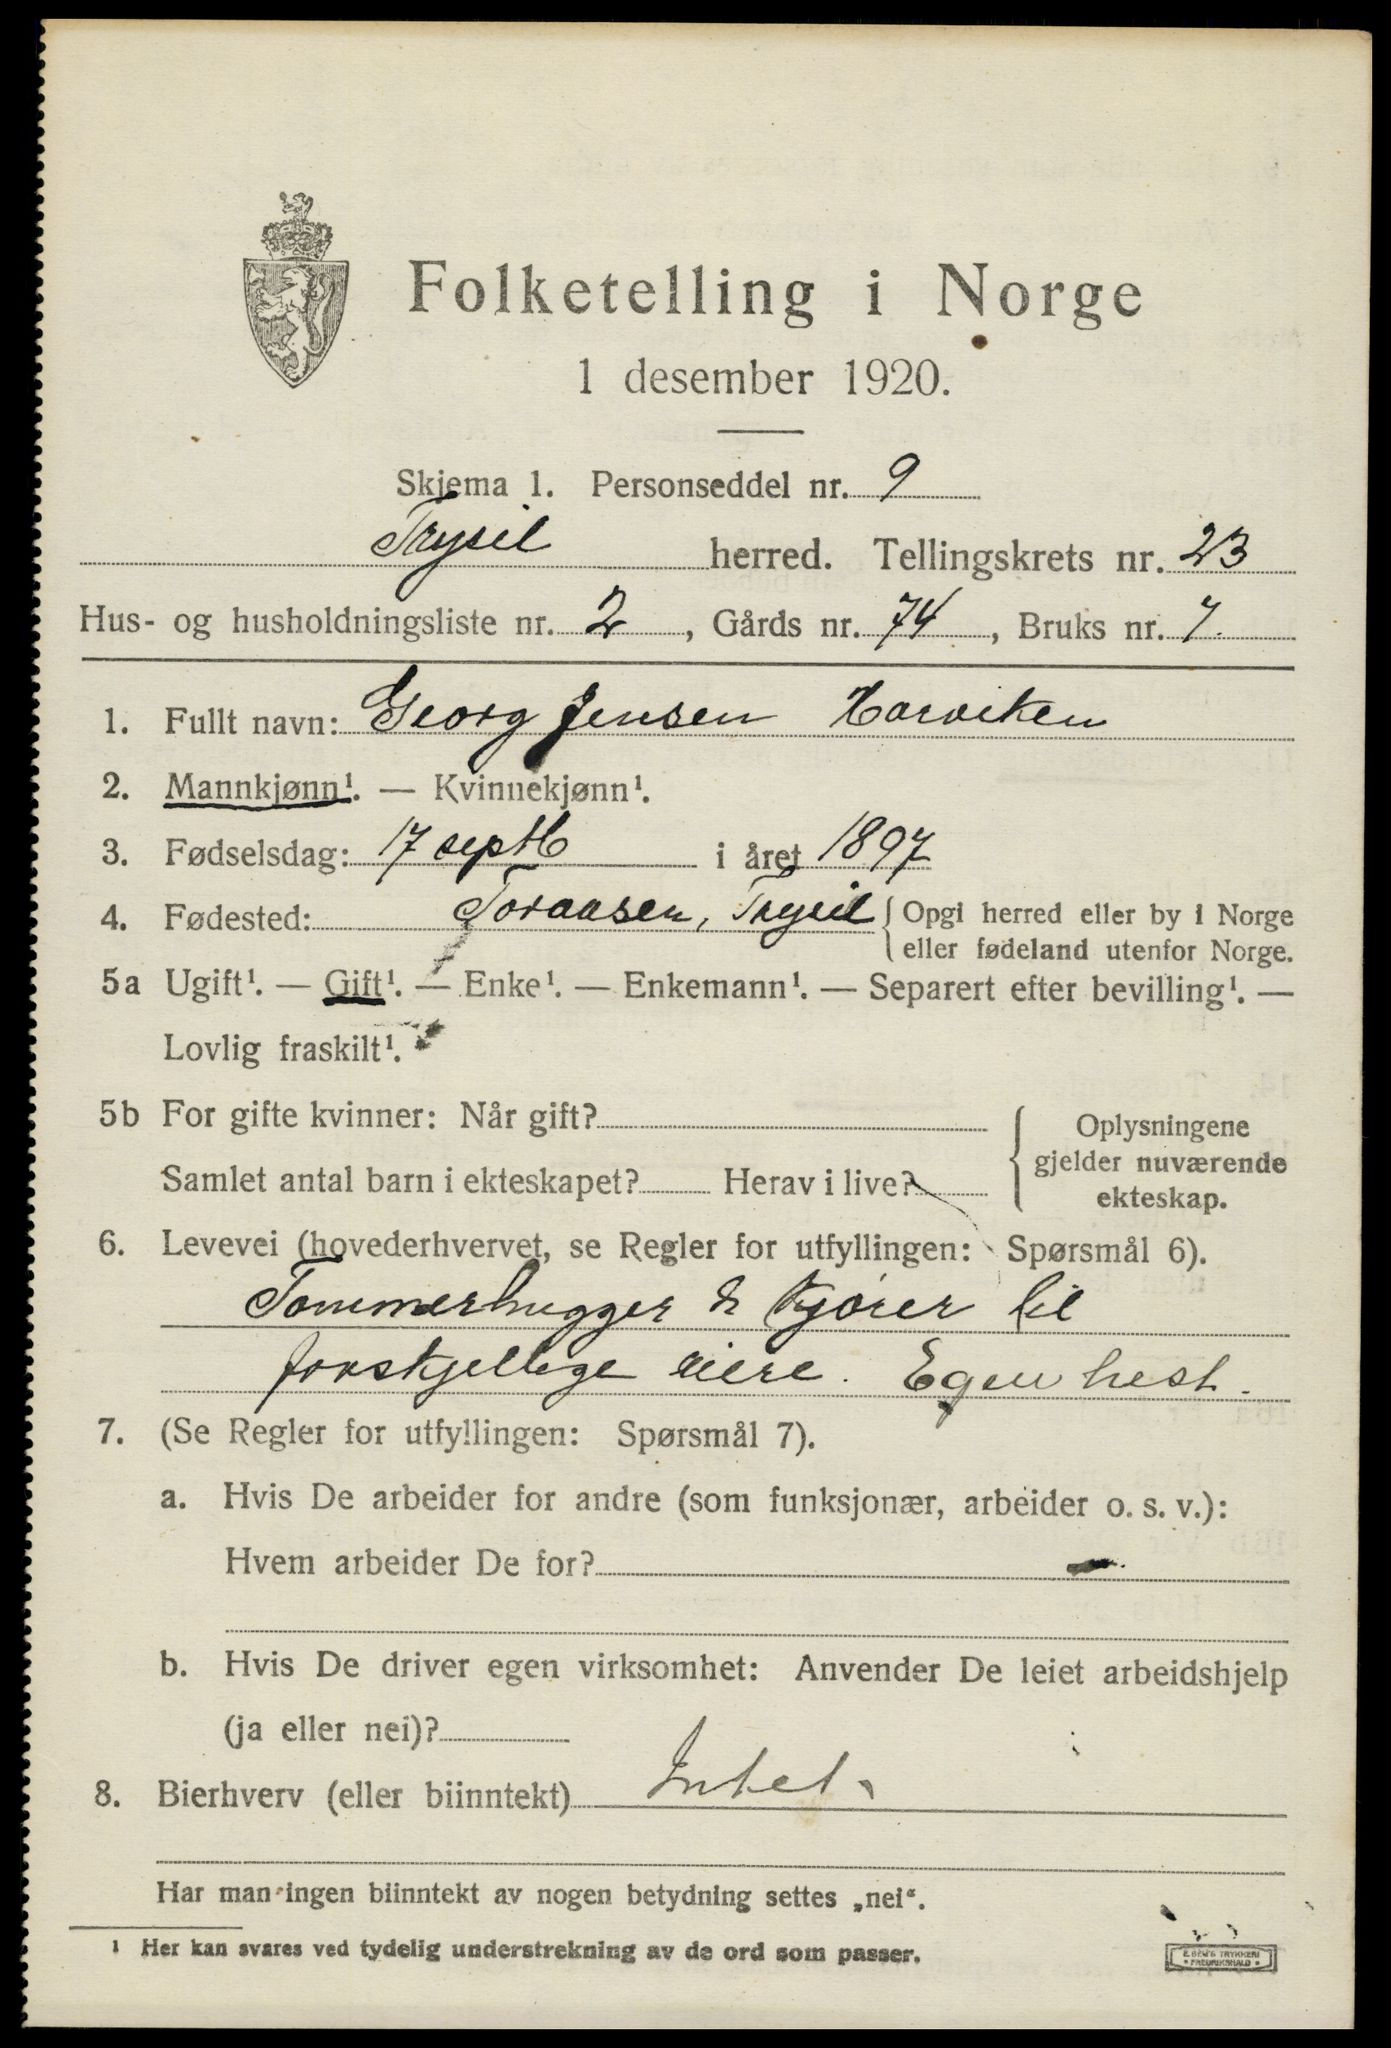 Folketelling i Norge
1 desember 1920.
Skjema 1. Personseddel nr. 9
Trysil herred. Tellingskrets nr. 23
Hus- og husholdningsliste nr. 2, Gårds nr. 74, Bruks nr. 7.
1. Fullt navn: Georg Jensen Harviken
2. Mannkjønn¹. — Kvinnekjønn¹.
3. Fødselsdag: 17 septb i året 1897
4. Fødested: Toraasen, Trysil { Opgi herred eller by i Norge
eller fødeland utenfor Norge.
5a Ugift¹. — Gift¹. — Enke¹. — Enkemann¹. — Separert efter bevilling¹. —
Lovlig fraskilt¹.
5b For gifte kvinner: Når gift?
Samlet antal barn i ekteskapet? Herav i live?
Oplysningene
gjelder nuværende
ekteskap.
6. Levevei (hovederhvervet, se Regler for utfyllingen: Spørsmål 6).
Tommerhugger & kjörer til
forskjellige eiere. Egen hest.
7. (Se Regler for utfyllingen: Spørsmål 7).
a. Hvis De arbeider for andre (som funksjonær, arbeider o. s. v.):
Hvem arbeider De for?
b. Hvis De driver egen virksomhet: Anvender De leiet arbeidshjelp
(ja eller nei)?
8. Bierhverv (eller biinntekt) Intet
Har man ingen biinntekt av nogen betydning settes „nei“.
¹ Her kan svares ved tydelig understrekning av de ord som passer.
E. SEM'S TRYKKERI
FREDRIKSHALD